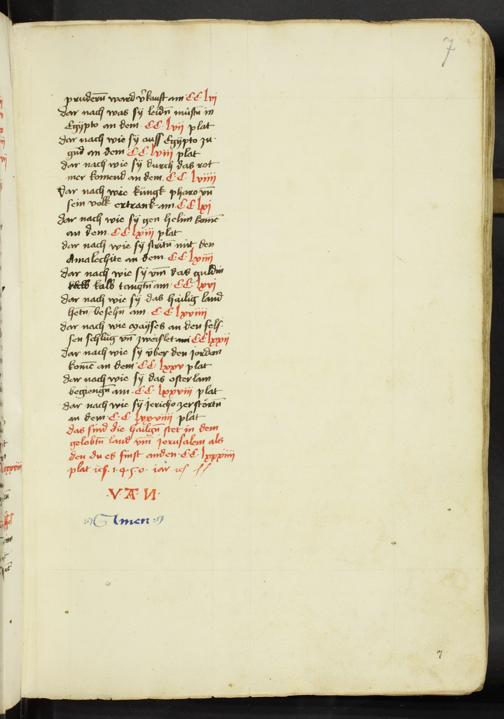 7
prudern ward v̄kauft am CC lvi
dar nach was sÿ leidn̄ mustn̄ in
Egipto an dem CC lvii plat
dar nach wie sÿ auss Egipto zu
gn̄d an dem CC lviii plat
dar nach wie sÿ durch das rot
mer komend an dem CC lviiii
dar nach wie küngk pharo vn̄
sein volk ertrank am CC lxi
dar nach wie sÿ gen helim komē
an dem CC lxiii plat
dar nach wie sÿ stritn̄ mit den
Amalechite an dem CC lxiiii
dar nach wie sÿ vm̄ das guldin
kalb tantztn̄ am CC lxvi
dar nach wie sÿ das hailig land
hetn̄ besehn̄ am CC lxviiii
dar nach wie moÿses an den felſ
sen schlug vn̄ zweiflet CC lxxii
dar nach wie sÿ v̈ber den jordan
komē an dem CC lxxv plat
dar nach wie sÿ das osterlam
begiengn̄ am CC lxxviii plat
dar nach wie sÿ jericho zerstortn̄
an dem CC lxxviiii plat
das sind die hailign̄ stet in dem
gelobtn̄ land vm̄ jerusalem als
den du es finst an den CC lxxxiiii
plat 1450 iar
V A N
Amen
7